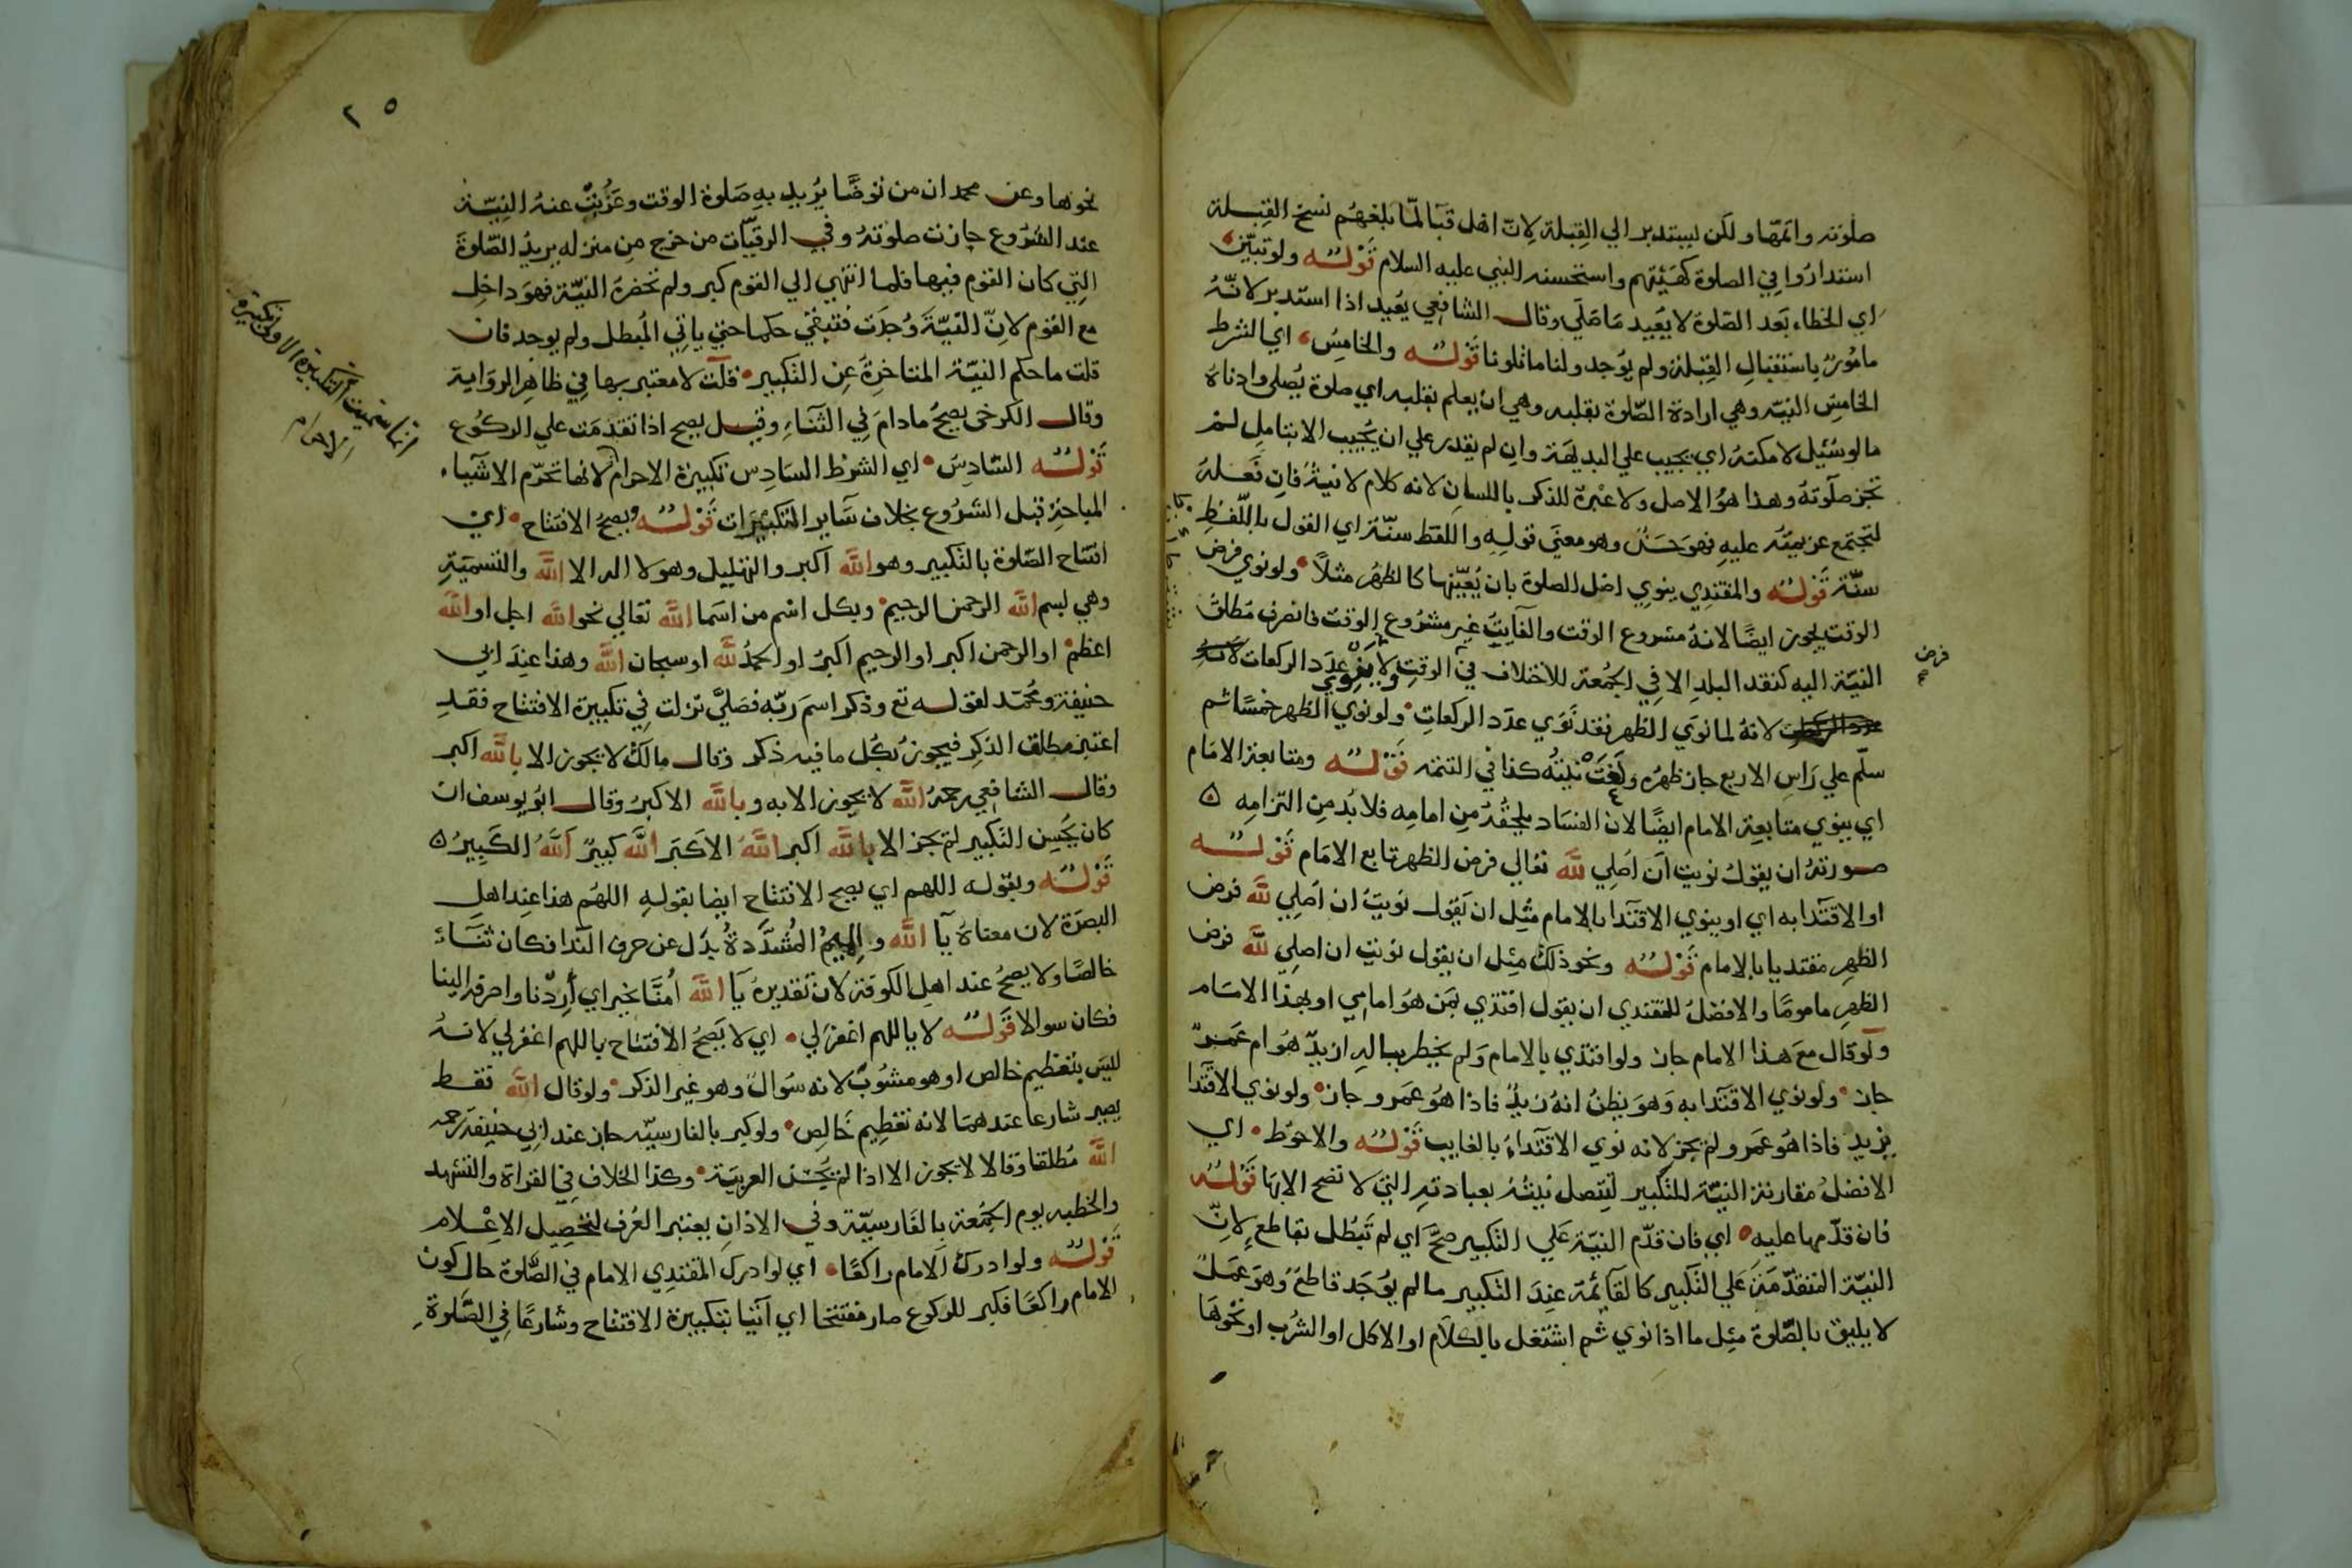 صلوته واتمها ولكن ليستدبر الي القبلة لان اهل قبا لما بلغهم نسخ القبلة
استداروا في الصلوة كهيئتهم واستحسنه النبي عليه السلام قوله ولو تبين
اي الخطاء بعد الصلوة لا يعيد ما صلي وقال الشافعي يعيد اذا استدبر لانه
مامور باستقبال القبلة ولم يوجد ولنا ما تلونا قوله والخامس اي الشرط
الخامس النية وهي ارادة الصلوة بقلبه وهي ان يعلم بقلبه اي صلوة يصلي وادناه
ما لو سئيل لامكنه اي يجيب علي البديهة وان لم يقدر علي ان يجيب الا بتامل لم
تجز صلوته وهذا هو الاصل ولا عبرة للذكر باللسان لانه كلام لا نية فان فعله
لتجتمع عزيمته عليه فهو حسن وهو معني قوله واللفظ سنة اي القول باللفظ
سنة قوله والمقتدي ينوي اصل الصلوة بان يعينها كالظهر مثلا ولو نوي فرض
الوقت يجوز ايضا لانه مشروع الوقت والفايت غير مشروع الوقت فانصرف مطلق
النية اليه كنقد البلد الا في الجمعة للاختلاف في الوقت ولا ينوي عدد الركعات
فرض صح
لانه لما نوي الظهر فقد نوي عدد الركعات ولو نوي الظهر خمسا ثم
سلم علي راس الاربع جاز ظهره ولغت نيته كذا في التتمه قوله ومتابعة الامام
اي ينوي متابعة الامام ايضا لان الفساد يلحقه من امامه فلا بد من التزامه ٥
صورته ان يقول نويت ان اصلي لله تعالي فرض الظهر تابع الامام قوله
او الاقتدا به اي او ينوي الاقتدا بالامام مثل ان يقول نويت ان اصلي لله فرض
الظهر مقتديا بالامام قوله ونحو ذلك مثل ان يقول نويت ان اصلي لله فرض
الظهر ماموما والافضل للمقتدي ان يقول اقتدي بمن هو امامي او بهذا الامام
ولو قال مع هذا الامام جاز ولو اقتدي بالامام ولم يخطر بباله ازيد هو ام عمرو
جاز ولو نوي الاقتدا به وهو يظن انه زيد فاذا هو عمرو جاز ولو نوي الاقتدا
بزيد فاذا هو عمرو لم يجز لانه نوي الاقتداء بالغايب قوله والاحوط اي
الافضل مقارنة النية للتكبير لتتصل نيته بعبادته التي لا تصح الا بها قوله
فان قدمها عليه اي فان قدم النية علي التكبير صح اي لم تبطل بقاطع لان
النية المتقدمة علي التكبير كالقائمة عند التكبير ما لم يوجد قاطع وهو عمل
لا يليق بالصلوة مثل ما اذا نوي ثم اشتغل بالكلام او الاكل او الشرب او نحوها
٢٥
نحوها وعن محمد ان من توضا يريد به صلوة الوقت وعزبت عنه النية
عند الشروع جازت صلوته وفي الرقيات من خرج من منزله يريد الصلوة
التي كان القوم فيها فلما انتهي الي القوم كبر ولم تحضره النية فهو داخل
مع القوم لان النية وجدت فتبقي حكما حتي ياتي المبطل ولم يوجد فان
قلت ما حكم النية المتاخرة عن التكبير قلت لا معتبر بها في ظاهر الرواية
وقال الكرخي يصح ما دام في الثناء وقيل يصح اذا تقدمت علي الركوع
قوله السادس اي الشرط السادس تكبيرة الاحرام لانها تحرم الاشياء
انما سميت التكبيرة الاولي تكبيرة
الاحرام
المباحة قبل الشروع بخلاف ساير التكبيرات قوله ويصح الافتتاح اي
افتتاح الصلوة بالتكبير وهو الله اكبر والتهليل وهو لا اله الا الله والتسمية
وهي بسم الله الرحمن الرحيم وبكل اسم من اسما الله تعالي نحو الله اجل او الله
اعظم او الرحمن اكبر او الرحيم اكبر او الحمد لله او سبحان الله وهذا عند ابي
حنيفة ومحمد لقوله تع وذكر اسم ربه فصلي نزلت في تكبيرة الافتتاح فقد
اعتبر مطلق الذكر فيجوز بكل ما فيه ذكر وقال مالك لا يجوز الا بالله اكبر
وقال الشافعي رحمه الله لا يجوز الا به وبالله الاكبر وقال ابو يوسف ان
كان يحسن التكبير لم يجز الا بالله اكبر الله الاكبر الله كبير الله الكبير ٥
قوله وبقوله اللهم اي يصح الافتتاح ايضا بقوله اللهم هذا عند اهل
البصرة لان معناه يا الله والميم المشددة بدل عن حرف الندا فكان ثناء
خالصا ولا يصح عند اهل الكوفة لان تقديره يا الله امنا بخير اي اردنا واصرفه الينا
فكان سوالا قوله لا باللهم اغفر لي اي لا يصح الافتتاح باللهم اغفر لي لانه
ليس بتعظيم خالص او هو مشوب لانه سوال وهو غير الذكر ولو قال الله فقط
يصير شارعا عندهما لانه تعظيم خالص ولو كبر بالفارسيه جاز عند ابي حنيفة رحمه
الله مطلقا وقالا لا يجوز الا اذا لم يحسن العربية وكذا الخلاف في القراة والتشهد
والخطبه يوم الجمعة بالفارسية وفي الاذان يعتبر العرف لتحصيل الاعلام
قوله ولو ادرك الامام راكعا اي لو ادرك المقتدي الامام في الصلوة حال كون
الامام راكعا فكبر للركوع صار مفتتحا اي آتيا بتكبيرة الافتتاح وشارعا في الصلوة